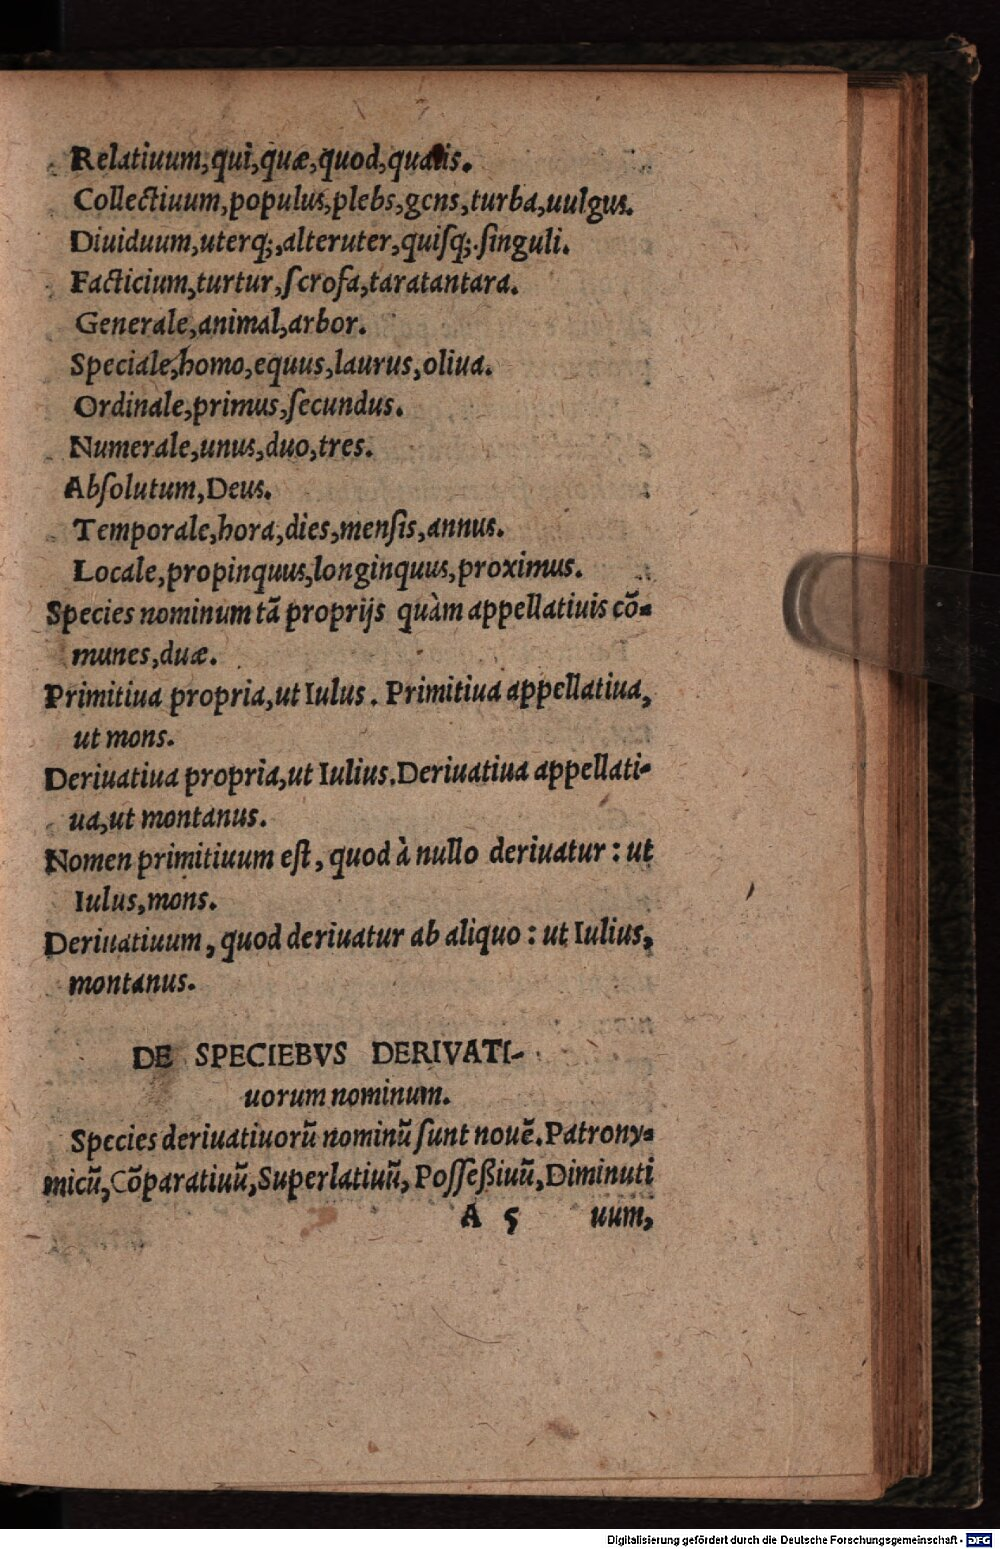 Relatiuum, qui, quæ, quod, qualis.
Collectiuum, populus, plebs, gens, turba, uulgus.
Diuiduum, uterq;, alteruter, quiſq;. ſinguli.
Facticium, turtur, ſcrofa, taratantara.
Generale, animal, arbor.
Speciale, homo, equus, laurus, oliua.
Ordinale, primus, ſecundus.
Numerale, unus, duo, tres.
Abſolutum, Deus.
Temporale, hora, dies, menſis, annus.
Locale, propinquus, longinquus, proximus.
Species nominum tā proprijs quàm appellatiuis cō-
munes, duæ.
Primitiua propria, ut Iulus. Primitiua appellatiua,
ut mons.
Deriuatiua propria, ut Iulius. Deriuatiua appellati-
ua, ut montanus.
Nomen primitiuum eſt, quod à nullo deriuatur: ut
Iulus, mons.
Deriuatiuum, quod deriuatur ab aliquo: ut Iulius,
montanus.
DE SPECIEBVS DERIVATI-
uorum nominum.
Species deriuatiuorū nominū ſunt nouē. Patrony-
micū, Cōparatiuū, Superlatiuū, Poſſeßiuū, Diminuti
A 5 uum,
Digitalisierung gefördert durch die Deutsche Forschungsgemeinschaft - DFG